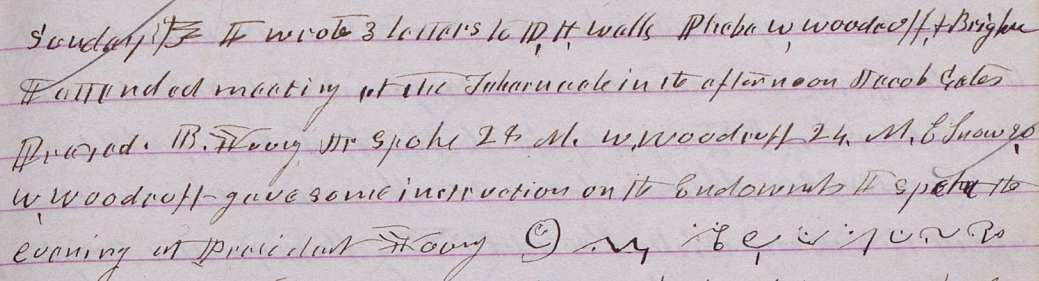 Sunday 13 I wrote 3 letters to D, H, Wells Phebe W, Woodruff, & Brigham
I attended meeting at the Tabernacle in the afternoon Jacob Gates
Prayed. B. Young Jr spoke 28 M. W, Woodruff 24, M, E Snow 20
W, Woodruff gave some instruction on the Endowments I spent the
evening at President Young